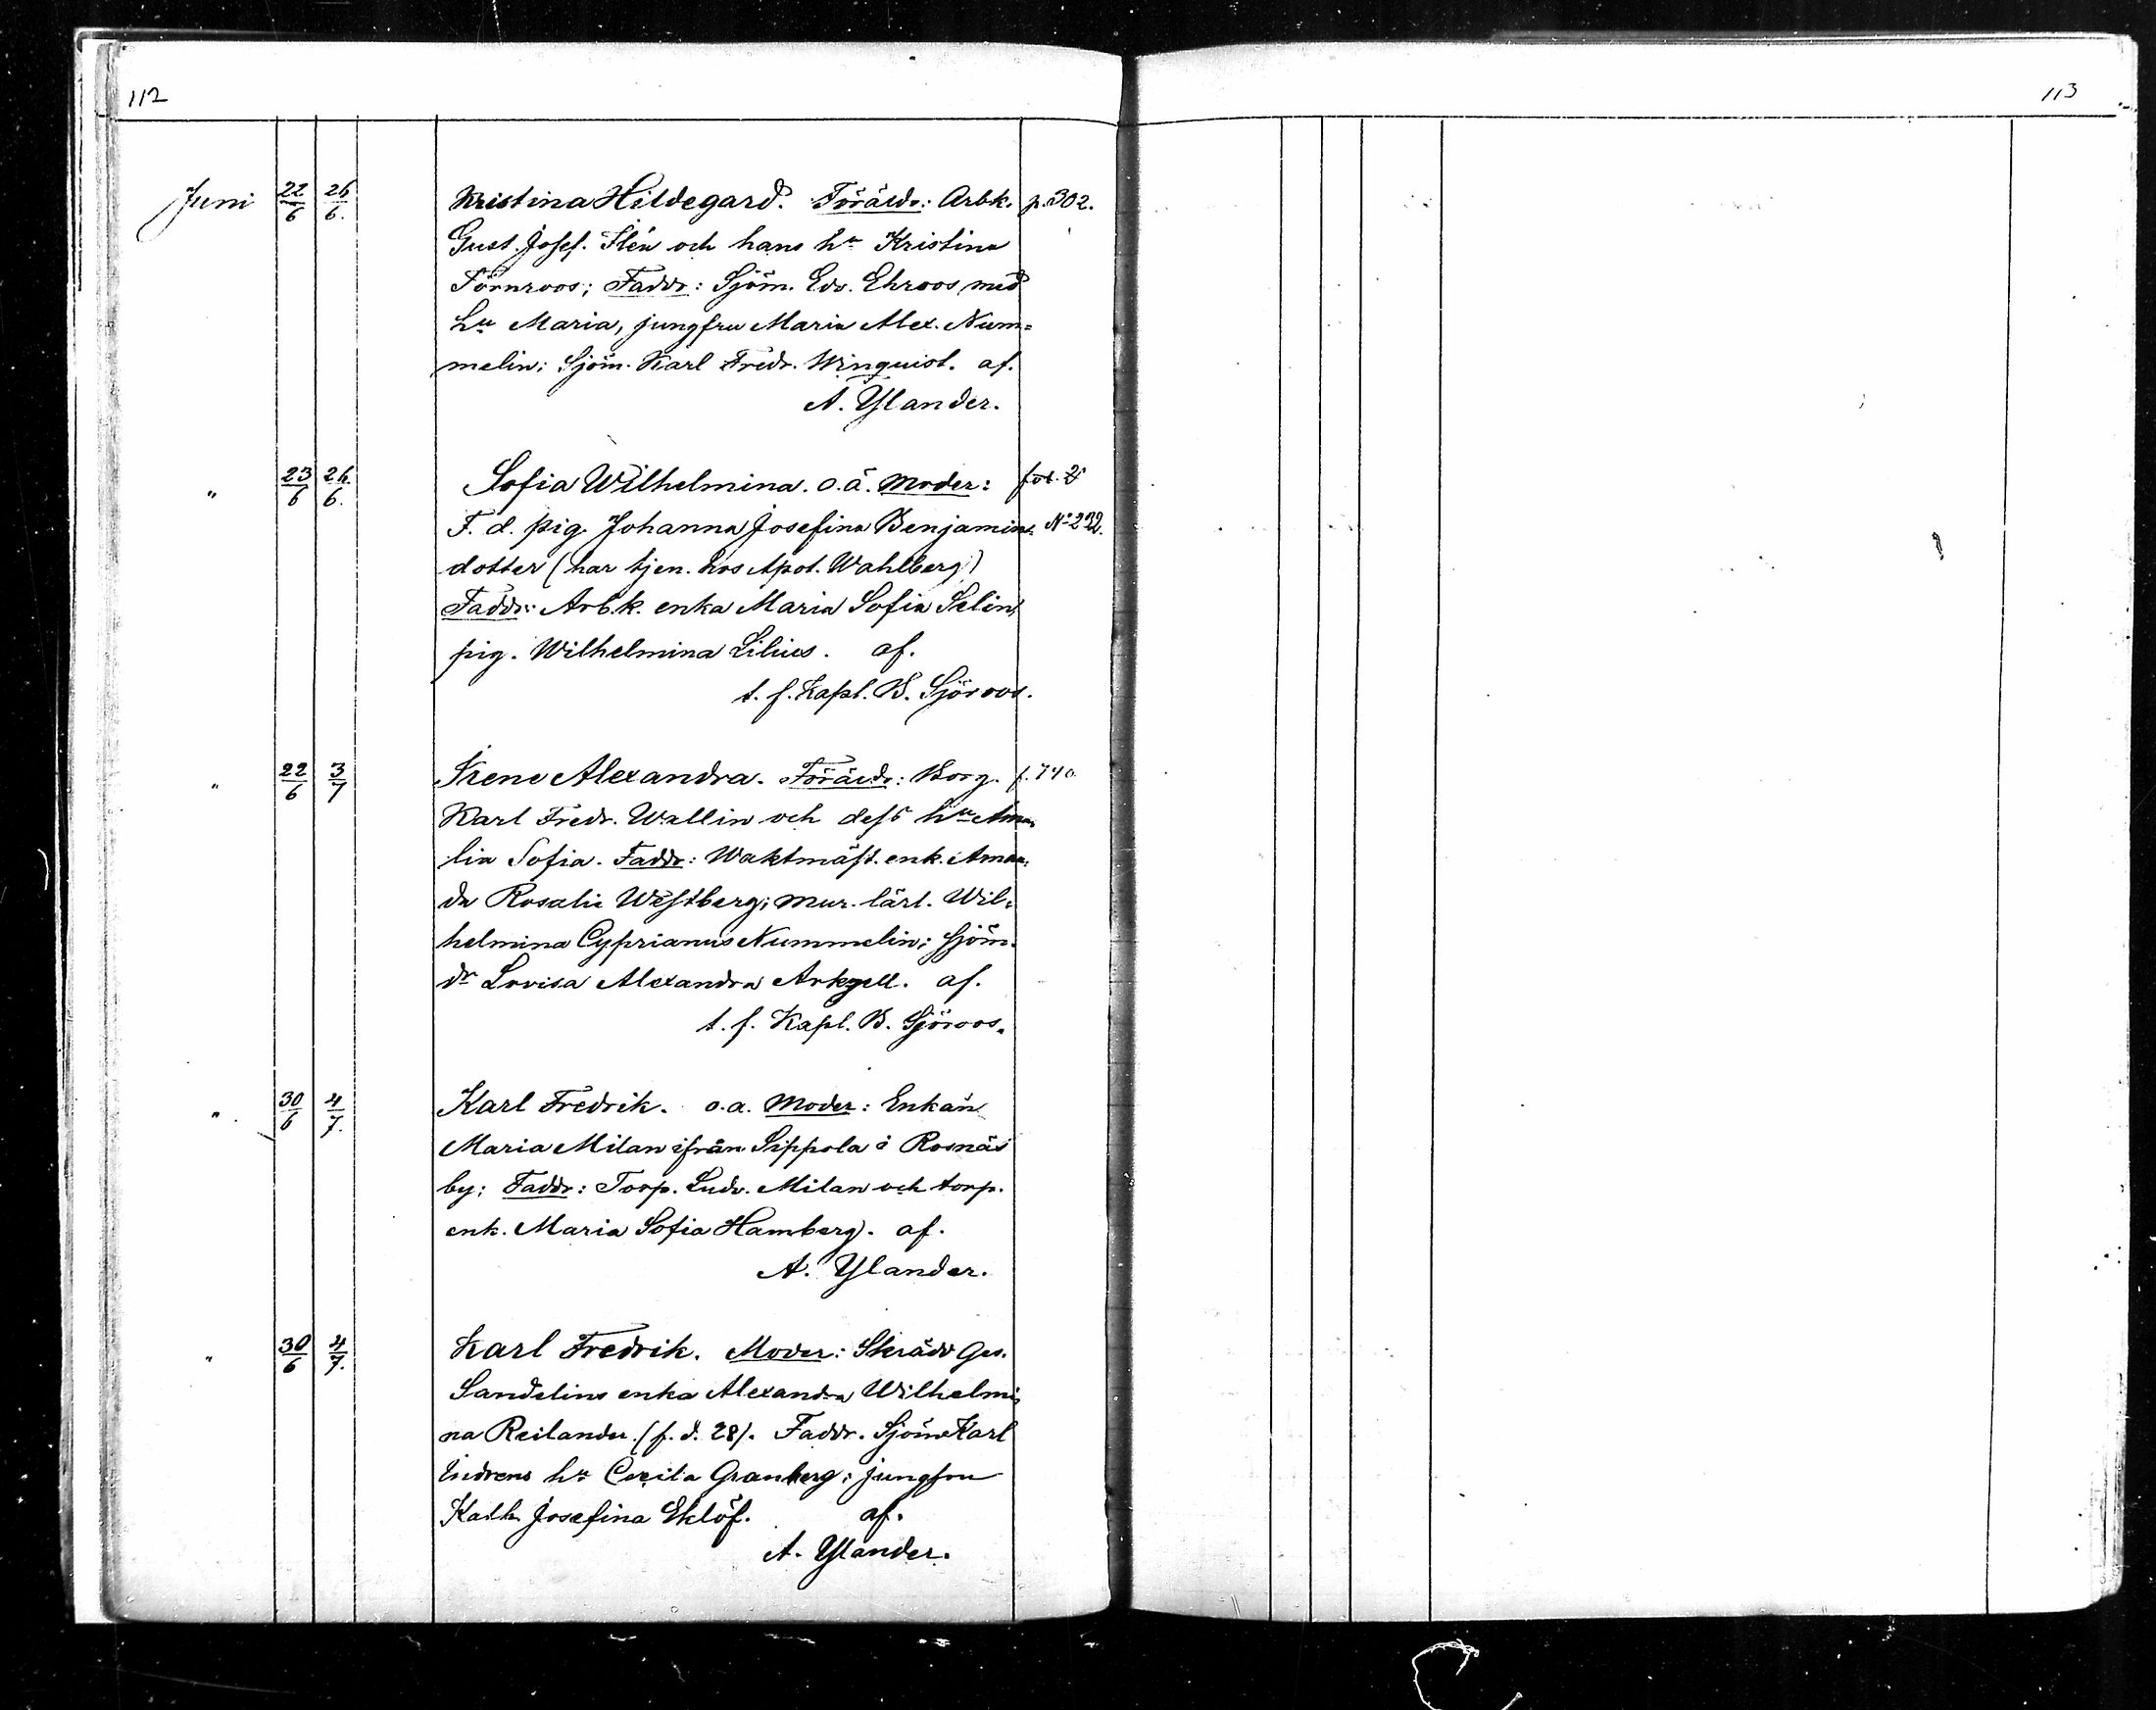 112
113
Juni 22/6 26/6. Kristina Hildegard. Föräldr: Arbk. p. 302.
Gust. Josef. Flén och hans hu Kristina
Törnroos; Faddr: Sjöm. Edv. Ehroos med
hu Maria, jungfru Maria Alex. Num=
melin; Sjöm. Karl Fredr. Winquist. af.
A. Ylander.
" 23/6 26/6. Sofia Wilhelmina. o.ä. Moder:
F. d. pig. Johanna Josefina Benjamins= No 232.
dotter (har tjen. hos Apot. Wahlberg)
Faddr: Arb.k. enka Maria Sofia Selin,
pig. Wilhelmina Lilius. af.
t. f. Kapl. B. Sjöroos.
" 22/6 3/7 Irene Alexandra. Föräldr: Borg. f. 740
Karl Fredr. Wallin och dess hu Ama=
lia Sofia. Faddr: Waktmäst. enk. Aman=
da Rosalie Westberg; mur. lärl. Wil=
helmina Cyprianus Nummelin; sjöm.
dr Lovisa Alexandra Arkyell. af.
t. f. Kapl. B. Sjöroos.
" 30/6 4/7. Karl Fredrik. o.a. Moder: Enkan
Maria Milan ifrån Sippola i Rosnäs
by; Faddr: Torp. Ludv. Milan och torp.
enk. Maria Sofia Hamberg. af.
A. Ylander.
" 30/6 4/7. Karl Fredrik. Moder: Skrädd Ges.
Sandelins enka Alexandra Wilhelmi=
na Reilander. (f. d. 28). Faddr. Sjöm Karl
Lindrens hu Cecila Granberg; jungfru
Kath. Josefina Eklöf. af.
A. Ylander.